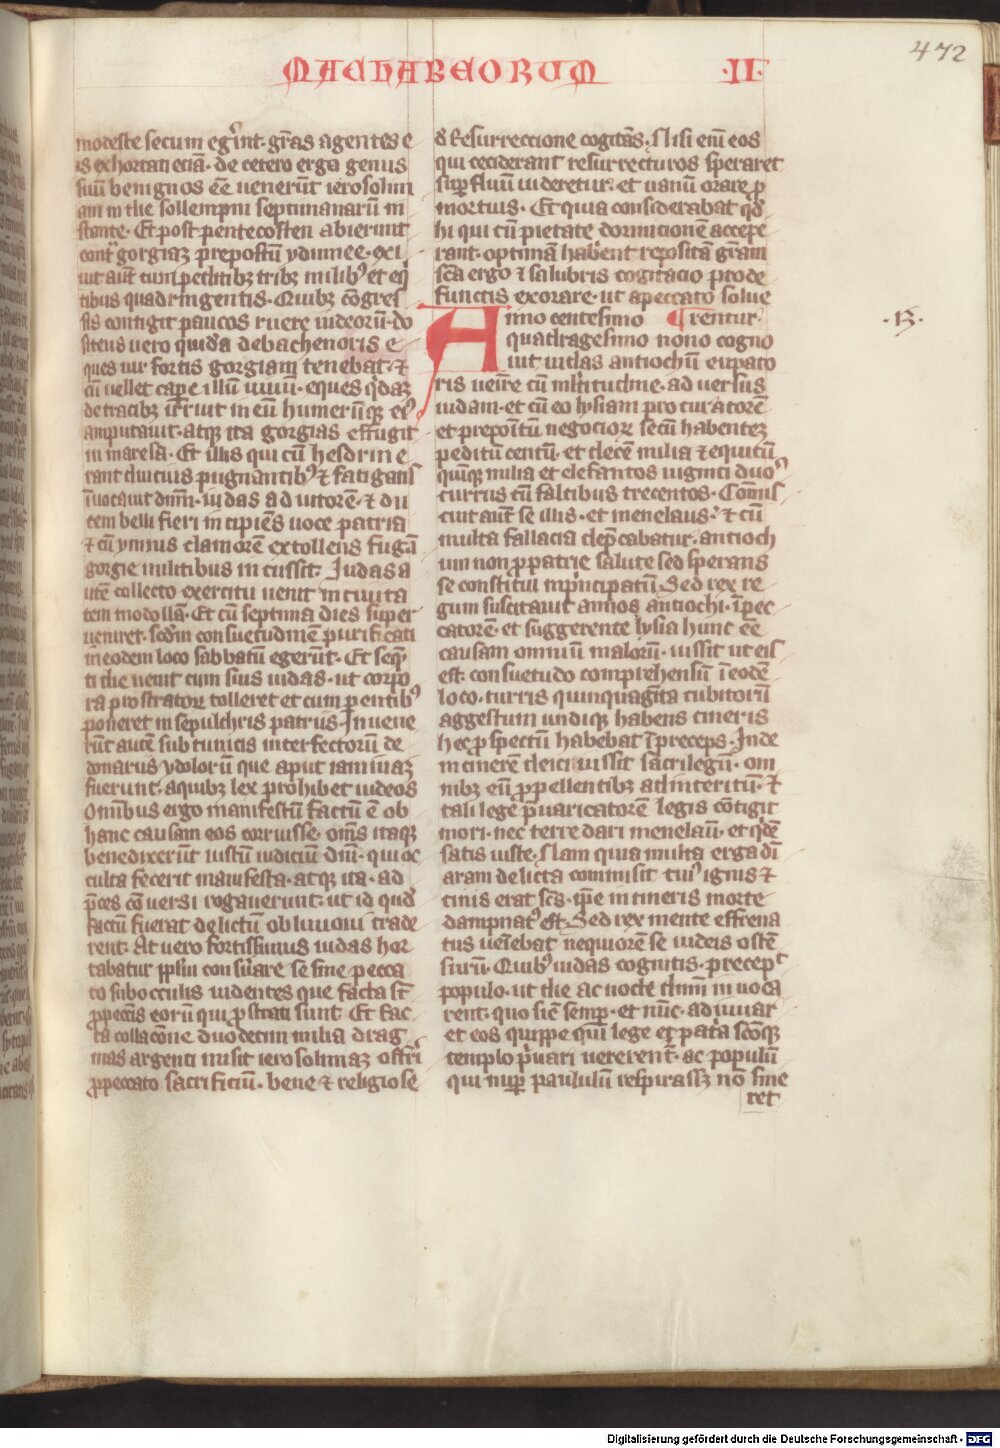 MACHABEORUM .II.
472
modeste secum eg̾int· gr̃as agentes e
is exhortati eciã· de cetero erga genus
suũ benignos eẽ uenerũt ierosolim
am in die sollempni septimanarũ in
stante· Et post pentecosten abierunt
contᵃ gorgiaꝫ prepositũ ydumee· exi
uit aut̃ cum peditibꝫ tribꝫ milibꝰ et eq̾
tibus quadringentis· Quibꝫ cõgres
sis contigit paucos ruere iudeorũ· do
siteus uero quidã de bachenoris e
ques uir fortis gorgiam tenebat· ⁊
cũ uellet cap̲e illũ uiuũ· eques q̾daꝫ
de tracibꝫ irruit in eũ humerũqꝫ eiꝰ
amputauit· atqꝫ ita gorgias effugit
in maresa· Et illis qui cũ hesdrin e
rant diucius pugnantibꝰ ⁊ fatigatis
ĩuocauit dñm· iudas adiutorẽ· ⁊ du
cem belli fieri incipiẽs uoce patria
⁊ cũ ymnis clamorẽ extollens fugã
gorgie militibus incussit· Iudas a
utẽ collecto exercitu uenit in ciuita
tem modollã· Et cũ septima dies super
ueniret· scd̾m consuetudinẽ purificati
in eodem loco sabbatũ egerũt· Et seq̃n
ti die uenit cum suis iudas· ut corpo
ra prostratoꝝ tolleret et cum parentibꝰ
poneret in sepulchris patrus· Inuene
rũt autẽ sub tunicis interfectorũ de
donariis ydolorũ que aput iamniaꝫ
fuerunt· a quibꝫ lex prohibet iudeos
Omnibus ergo manifestũ factũ ẽ ob
hanc causam eos corruisse· om̃s itaqꝫ
benedixerũt iustũ iudiciũ dñi· qui oc
culta fecerit manifesta· atqꝫ ita· ad
p̃ces cõuersi rogauerunt· ut id quod
factũ fuerat delictũ obliuioni trade
rent· At uero fortissimus iudas hor
tabatur pplm̃ conseruare se sine pecca
to sub occulis uidentes que facta st̃
ꝓ peccatis eorũ qui prostrati sunt· Et fac
ta collacõne duodecim milia drag
mas argenti misit ierosolimaꝫ offerri
ꝓ peccato sacrificiũ· bene ⁊ religiose
d̾ Resurreccione cogitãs· Nisi em̃ eos
qui ceciderant resurrecturos speraret
suꝑfluũ uideretur· et uanũ orare ꝓ
mortuis· Et quia considerabat qd̾
hi qui cũ pietate dormicionẽ accepe
rant· optimã haberent repositã gr̃am
sc̃a ergo ⁊ salubris cogitacio pro de
functis exorare· ut a peccato solue
Anno centesimo ¶ rentur·
quadragesimo nono cogno
uit iudas antiochũ eupato
ris uenire cũ multitudine· aduersus
iudam· et cũ eo lysiam procuratorẽ
et prepositũ negocioꝝ secũ habenteꝫ
peditũ centũ· et decẽ milia ⁊ equitũ
quinqꝫ milia et elefantos uiginti duoˢ
currus cũ falcibus trecentos· Com̃is
cuit aut̃ se illis· et menelaus· ⁊ cũ
multa fallacia dep̃cabatur· antioch
um non ꝓ patrie salute sed sperans
se constitui in principatũ· Sed rex re
gum suscitauit animos antiochi· ĩ pec
catorẽ· et suggerente lysia hunc eẽ
causam omniũ malorũ· iussit ut eis
est consuetudo comprehensũ ĩ eodẽ
loco· turris quinquaginta cubitorũ
aggestum undiqꝫ habens cineris
hec ꝓspectũ habebat ĩ preceps· Inde
in cinerem deici iussit sacrilegũ· om
nibꝫ eũ ꝓpellentibꝫ ad interitũ· ⁊
tali lege p̃uaricatorẽ legis cõtigit
mori· nec terre dari menelaũ· et q̾dẽ
satis iuste· Nam quia multa erga dĩ
aram delicta commisit cuiꝰ ignis ⁊
cinis erat sc̃s· ip̃e in cineris morte
dampnatꝰ est· Sed rex mente effrena
tus ueniebat nequiorẽ se iudeis ostẽ
surũ· Quibꝰ iudas cognitis· precepᵗ
populo· ut die ac nocte dnm̃ inuoca
rent· quo sicut semꝑ· et nũc· adiuuaret
et eos quippe qui lege et patria scõqꝫ
templo priuari uererent̃· ac populũ
qui nuꝑ paululũ respirassꝫ nõ sine
ret
·13·
Digitalisierung gefördert durch die Deutsche Forschungsgemeinschaft - DFG